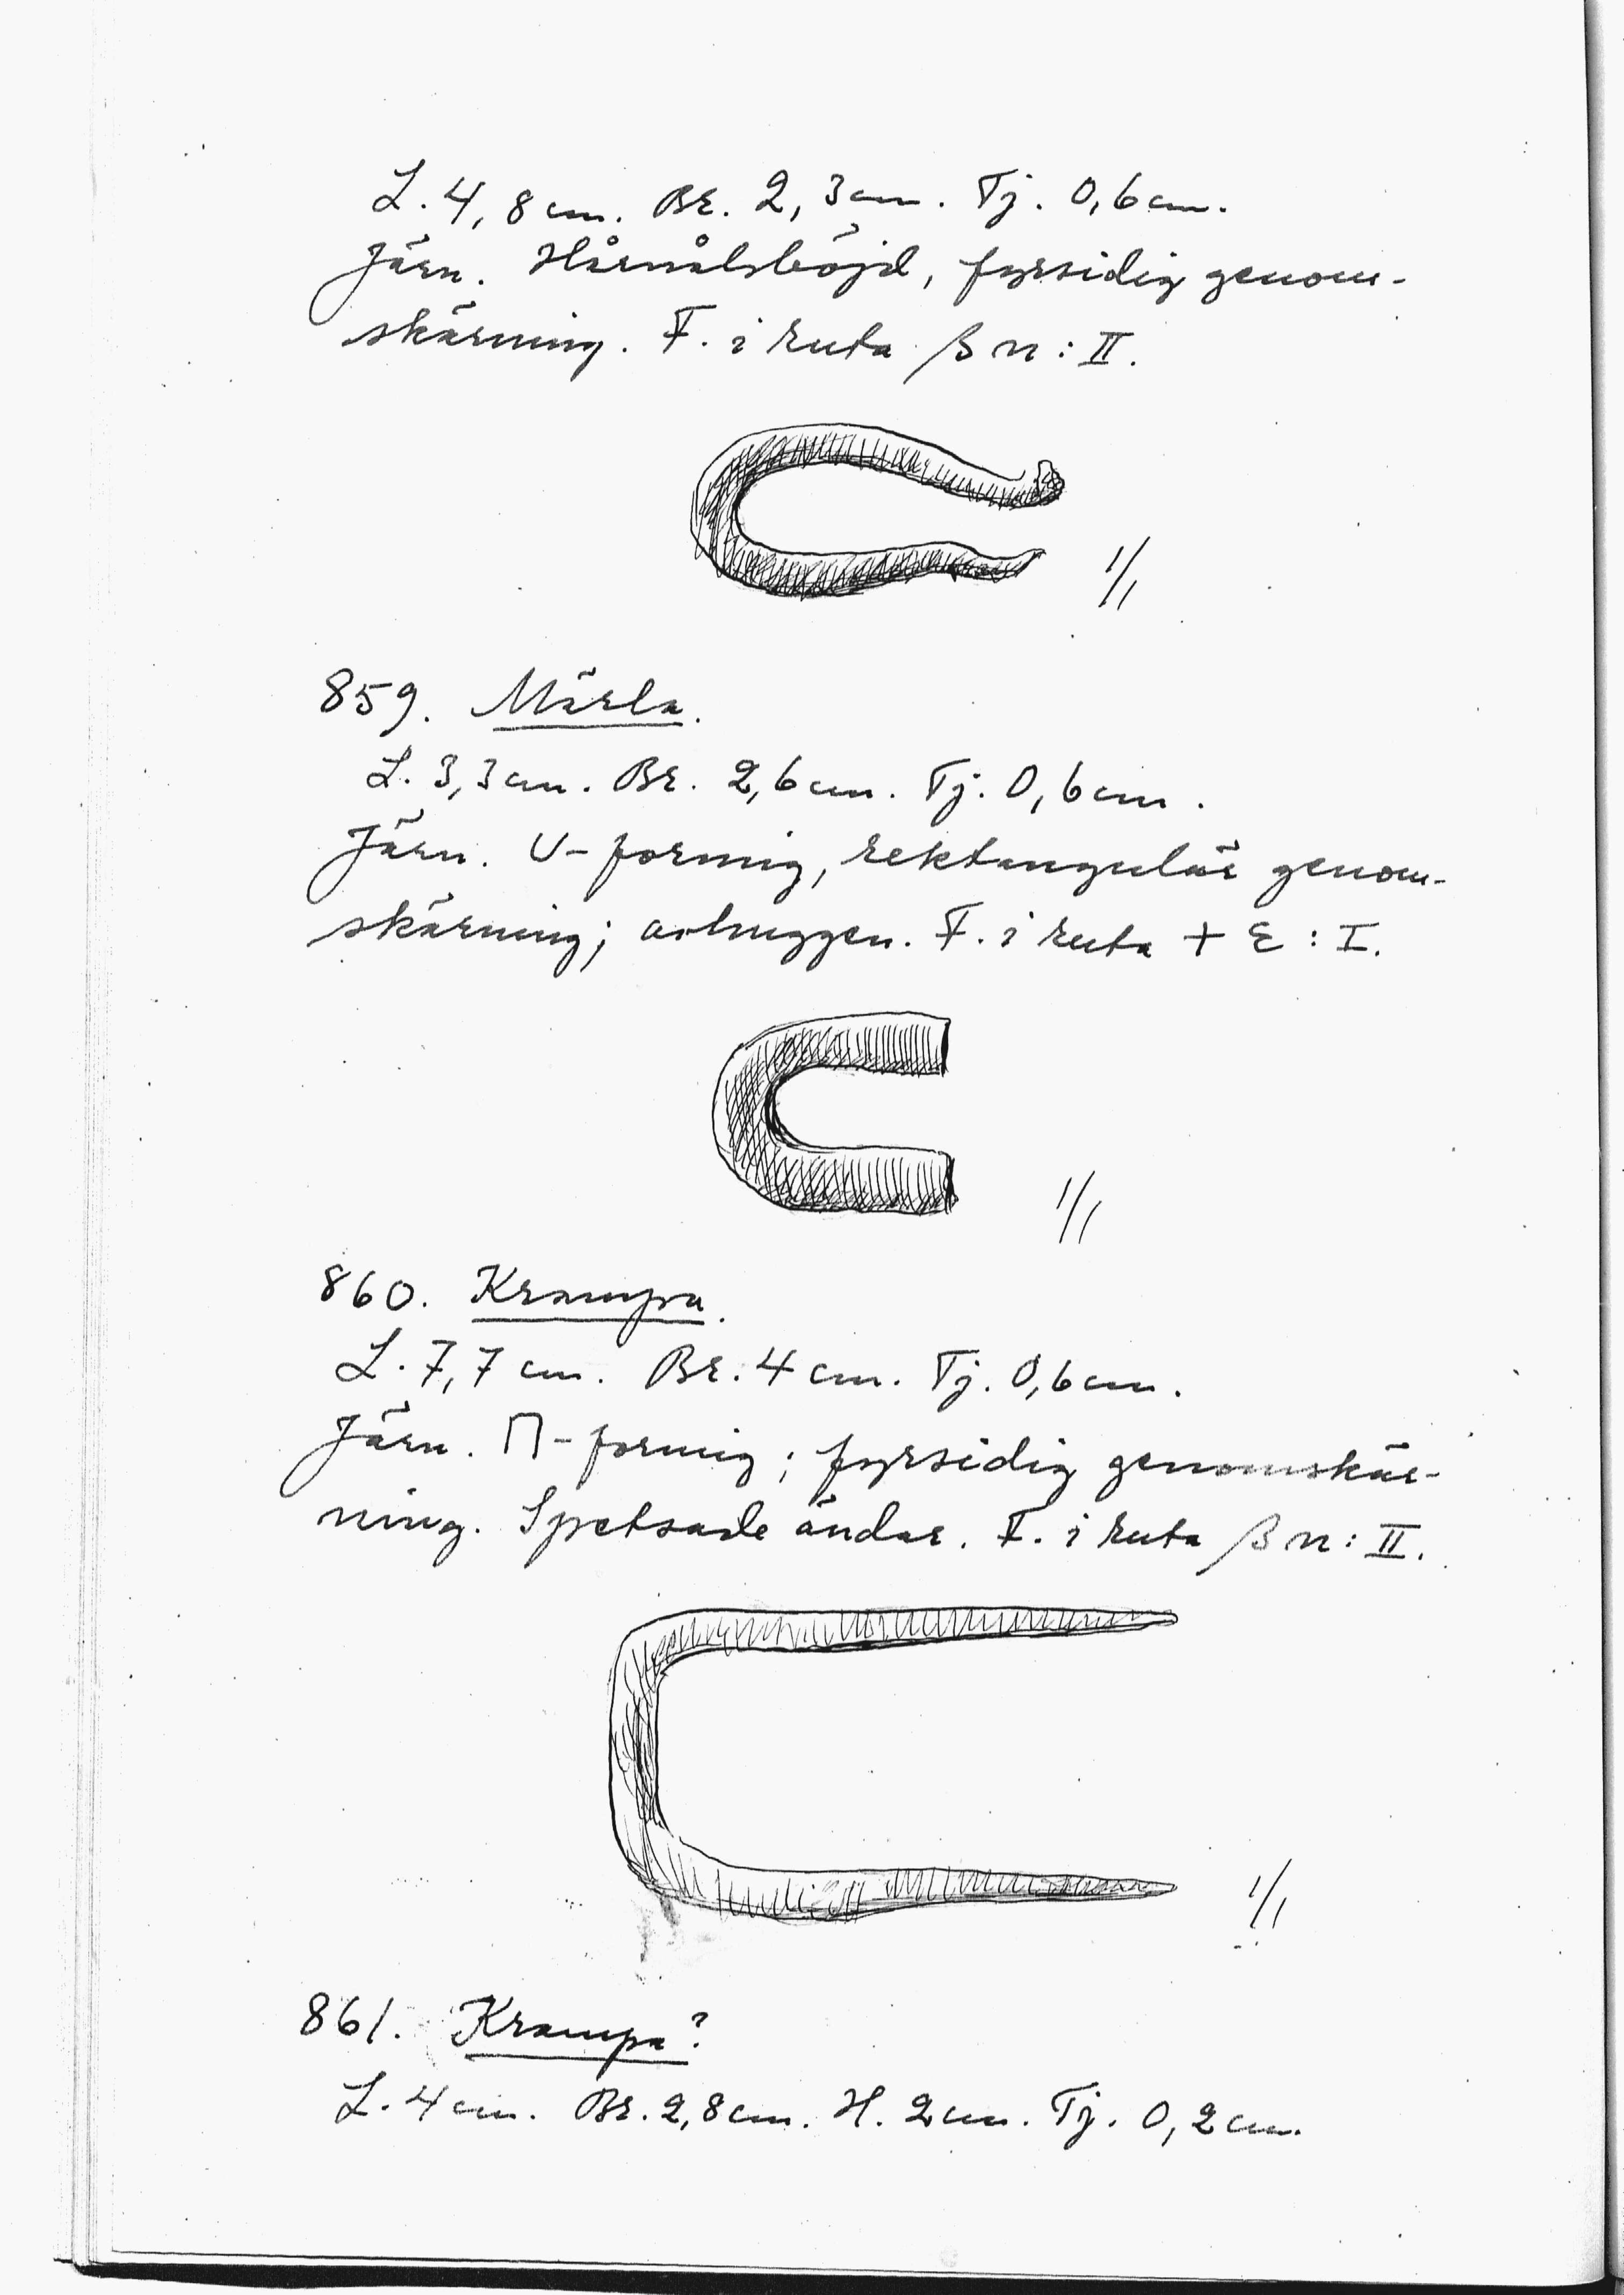 L. 4,8 cm. Br. 2,3 cm. Tj. 0,6 cm.
Järn. Hårnålsböjd, fyrsidig genom-
skärning. F. i ruta β n : II.
1/1
859. Märla.
L. 3,3 cm. Br. 2,6 cm. Tj. 0,6 cm.
Järn. U-formig, rektangulär genom-
skärning; avhuggen. F. i ruta + ε : I.
1/1
860. Krampa.
L. 7,7 cm. Br. 4 cm. Tj. 0,6 cm.
Järn. Π-formig; fyrsidig genomskär-
ning. Spetsade ändar. F. i ruta β n : II.
1/1
861. Krampa?
L. 4 cm. Br. 2,8 cm. H. 2 cm. Tj. 0,2 cm.